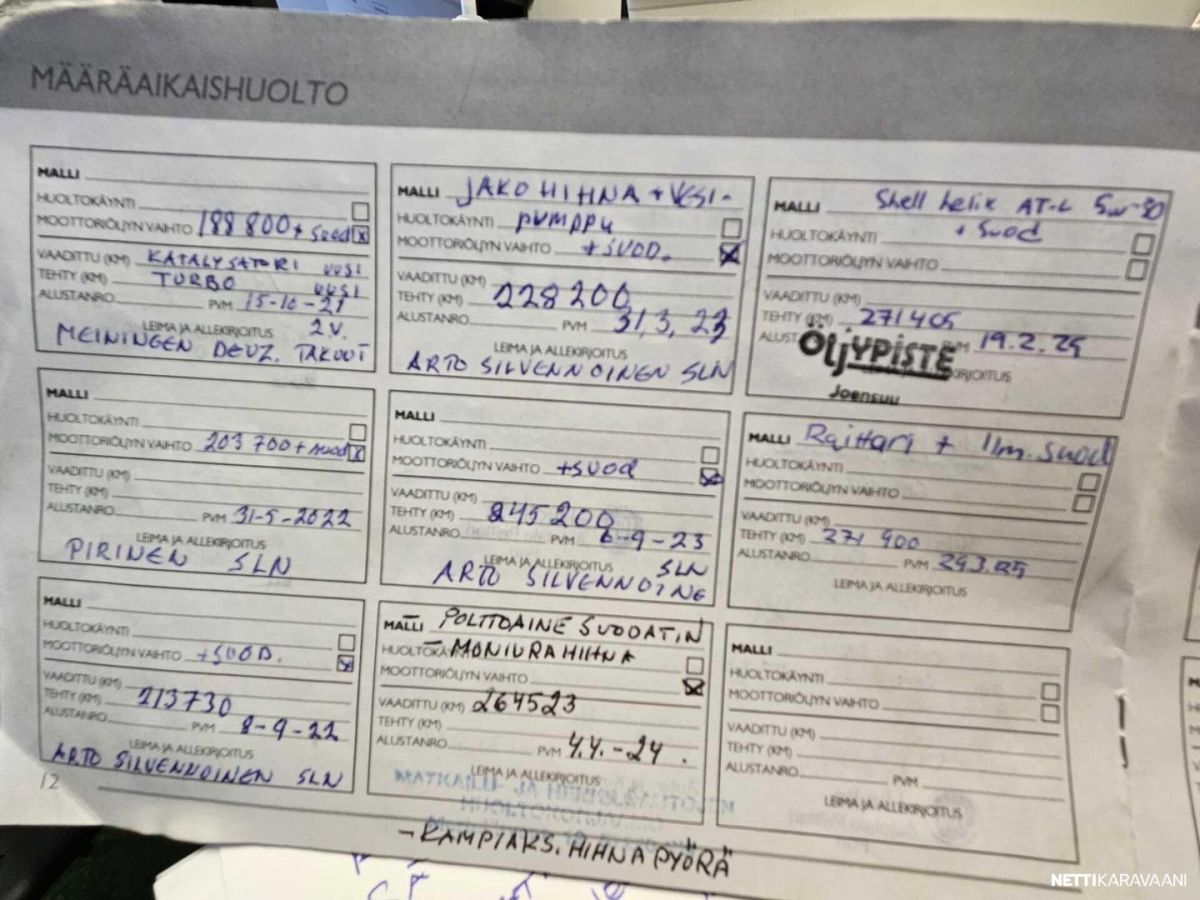 MÄÄRÄAIKAISHUOLTO
MALLI
HUOLTOKÄYNTI
MOOTTORIÖLJYN VAIHTO 188 800 + suod x
VAADITTU (KM) KATALYSATORI UUSI
TEHTY (KM) TURBO UUSI
ALUSTANRO PVM 15-10-21
LEIMA JA ALLEKIRJOITUS 2 V.
MEININGEN DEUZ. TAKUUT
MALLI
HUOLTOKÄYNTI
MOOTTORIÖLJYN VAIHTO 203 700 + suod x
VAADITTU (KM)
TEHTY (KM)
ALUSTANRO PVM 31-5-2022
LEIMA JA ALLEKIRJOITUS
PIRINEN SLN
MALLI
HUOLTOKÄYNTI
MOOTTORIÖLJYN VAIHTO +SUOD. x
VAADITTU (KM)
TEHTY (KM) 213730
ALUSTANRO PVM 8-9-22
LEIMA JA ALLEKIRJOITUS
ARTO SILVENNOINEN SLN
12
MALLI JAKO HIHNA + VESI-
HUOLTOKÄYNTI pumppu
MOOTTORIÖLJYN VAIHTO +SUOD. x
VAADITTU (KM)
TEHTY (KM) 228 200
ALUSTANRO PVM 31.3.23
LEIMA JA ALLEKIRJOITUS
ARTO SILVENNOINEN SLN
MALLI
HUOLTOKÄYNTI
MOOTTORIÖLJYN VAIHTO +SUOD x
VAADITTU (KM)
TEHTY (KM) 245200
ALUSTANRO PVM 6-9-23
LEIMA JA ALLEKIRJOITUS SLN
ARTO SILVENNOINE
MALLI - POLTTOAINE SUODATIN
HUOLTOKÄYNTI - MONIURAHIHNA
MOOTTORIÖLJYN VAIHTO x
VAADITTU (KM) 264523
TEHTY (KM)
ALUSTANRO PVM 4.4.-24.
LEIMA JA ALLEKIRJOITUS
- KAMPIAKS. HIHNAPYÖRÄ
MALLI Shell helix AT-L 5w-30
HUOLTOKÄYNTI + Suod
MOOTTORIÖLJYN VAIHTO
VAADITTU (KM)
TEHTY (KM) 271405
ALUST PVM 19.2.25
ÖljYPISTE
KIRJOITUS
Joensuu
MALLI Raittari + Ilm.suod
HUOLTOKÄYNTI
MOOTTORIÖLJYN VAIHTO
VAADITTU (KM)
TEHTY (KM) 271 900
ALUSTANRO PVM 29.3.25
LEIMA JA ALLEKIRJOITUS
MALLI
HUOLTOKÄYNTI
MOOTTORIÖLJYN VAIHTO
VAADITTU (KM)
TEHTY (KM)
ALUSTANRO PVM
LEIMA JA ALLEKIRJOITUS
NETTIKARAVAANI